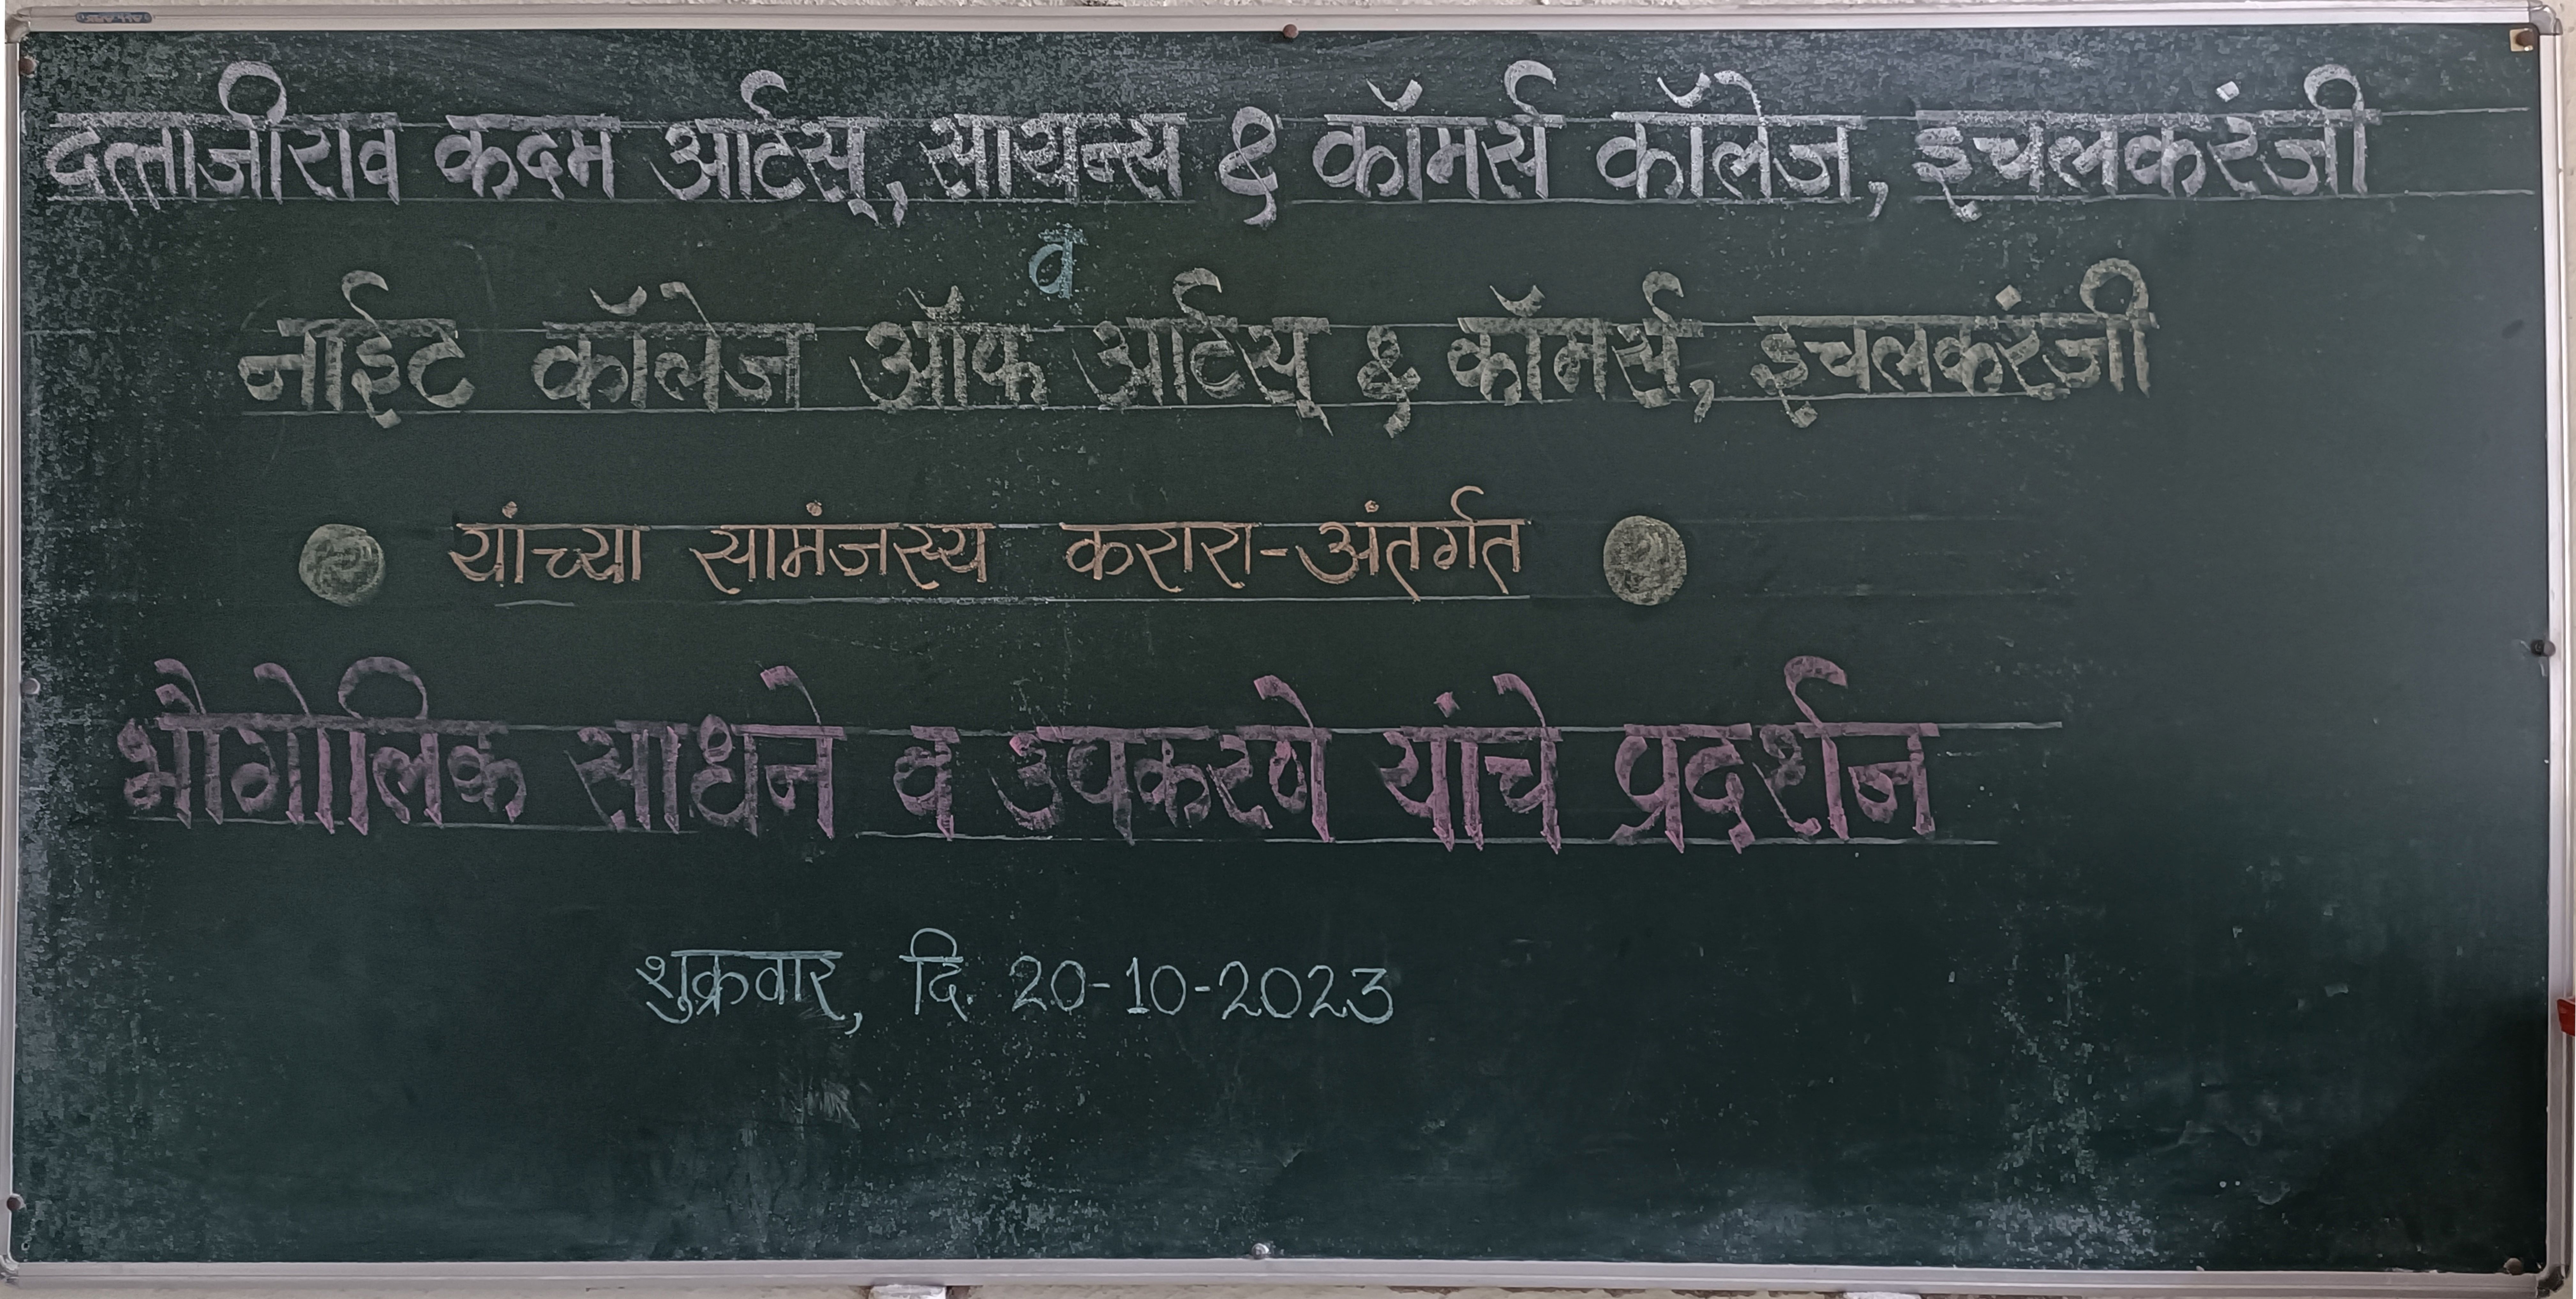 दत्ताजीराव कदम आर्टस्, सायन्स & कॉमर्स कॉलेज, इचलकरंजी
व
नाईट कॉलेज ऑफ आर्टस् & कॉमर्स, इचलकरंजी
यांच्या सामंजस्य करारा-अंतर्गत
भौगोलिक साधने व उपकरणे यांचे प्रदर्शन
शुक्रवार, दि. 20-10-2023